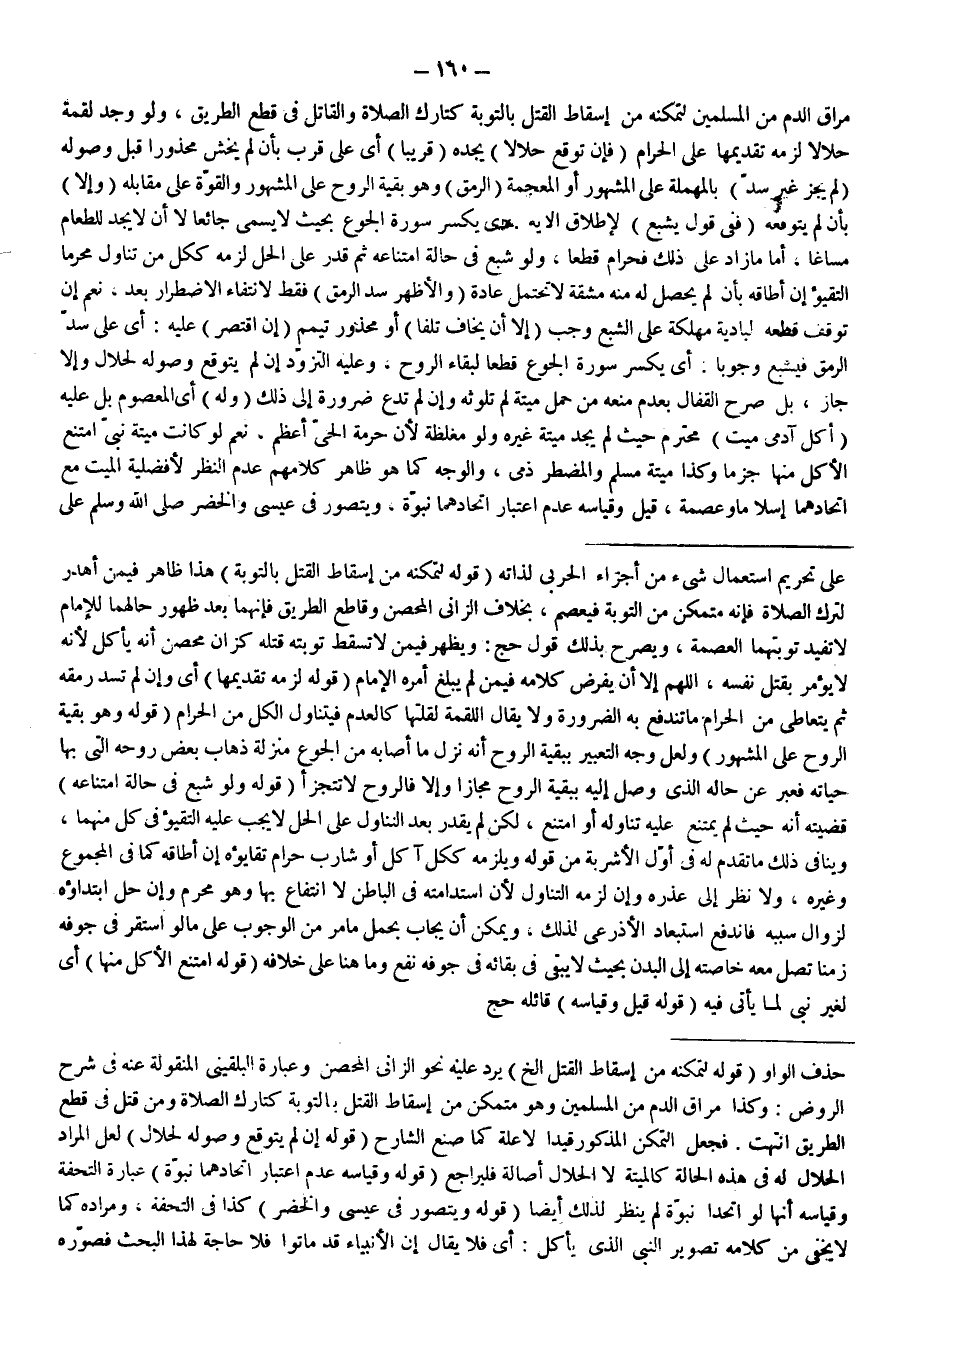 – ١٦٠ –
مراق الدم من المسلمين لتمكنه من إسقاط القتل بالتوبة كتارك الصلاة والقاتل فى قطع الطريق ، ولو وجد لقمة
حلالا لزمه تقديمها على الحرام ( فإن توقع حلالا ) يجده ( قريبا ) أى على قرب بأن لم يخش محذورا قبل وصوله
( لم يجز غير سدّ ) بالمهملة على المشهور أو المعجمة ( الرمق ) وهو بقية الروح على المشهور والقوّة على مقابله ( وإلا )
بأن لم يتوقعه ( فنى قول يشبع ) لإطلاق الآية . يكسر سورة الجوع بحيث لايسمى جائعا لا أن لايجد للطعام
مساغا ، أما مازاد على ذلك فحرام قطعا ، ولو شبع فى حالة امتناعه ثم قدر على الحل لزمه ككل من تناول محرما
التقيؤ إن أطاقه بأن لم يحصل له منه مشقة لاتحتمل عادة ( والأظهر سد الرمق ) فقط لانتفاء الاضطرار بعد ، نعم إن
توقف قطعه لبادية مهلكة على الشبع وجب ( إلا أن يخاف تلفا ) أو محذور تيمم ( إن اقتصر ) عليه : أى على سدّ
الرمق فيشبع وجوبا : أى يكسر سورة الجوع قطعا لبقاء الروح ، وعليه التزوّد إن لم يتوقع وصوله لحلال وإلا
جاز ، بل صرح القفال بعدم منعه من حمل ميتة لم تلوثه وإن لم تدع ضرورة إلى ذلك ( وله ) أى المعصوم بل عليه
( أكل آدمى ميت ) محترم حيث لم يجد ميتة غيره ولو مغلظة لأن حرمة الحىّ أعظم . نعم لو كانت ميتة نبىّ امتنع
الأكل منها جزما وكذا ميتة مسلم والمضطر ذمى ، والوجه كما هو ظاهر كلامهم عدم النظر لأفضلية الميت مع
اتحادهما إسلاما وعصمة ، قيل وقياسه عدم اعتبار اتحادهما نبوّة ، ويتصور فى عيسى والخضر صلى الله وسلم على
على تحريم استعمال شىء من أجزاء الحربى لذاته ( قوله لتمكنه من إسقاط القتل بالتوبة ) هذا ظاهر فيمن أهدر
لترك الصلاة فإنه متمكن من التوبة فيعصم ، بخلاف الزانى المحصن وقاطع الطريق فإنهما بعد ظهور حالهما للإمام
لاتفيد توبتهما العصمة ، ويصرح بذلك قول حج : ويظهر فيمن لاتسقط توبته قتله كزان محصن أنه يأكل لأنه
لايؤمر بقتل نفسه ، اللهم إلا أن يفرض كلامه فيمن لم يبلغ أمره الإمام ( قوله لزمه تقديمها ) أى وإن لم تسد رمقه
ثم يتعاطى من الحرام ماتندفع به الضرورة ولا يقال اللقمة لقلتها كالعدم فيتناول الكل من الحرام ( قوله وهو بقية
الروح على المشهور ) ولعل وجه التعبير ببقية الروح أنه نزل ما أصابه من الجوع منزلة ذهاب بعض روحه التى بها
حياته فعبر عن حاله الذى وصل إليه ببقية الروح مجازا وإلا فالروح لاتتجزأ ( قوله ولو شبع فى حالة امتناعه )
قضيته أنه حيث لم يمتنع عليه تناوله أو امتنع ، لكن لم يقدر بعد التناول على الحل لايجب عليه التقيؤ فى كل منهما ،
وينافى ذلك ماتقدم له فى أوّل الأشربة من قوله ويلزمه ككل آكل أو شارب حرام تقايؤه إن أطاقه كما فى المجموع
وغيره ، ولا نظر إلى عذره وإن لزمه التناول لأن استدامته فى الباطن لا انتفاع بها وهو محرم وإن حل ابتداؤه
لزوال سببه فاندفع استبعاد الأذرعى لذلك ، ويمكن أن يجاب بحمل مامر من الوجوب على مالو استقر فى جوفه
زمنا تصل معه خاصته إلى البدن بحيث لايبقى فى بقائه فى جوفه نفع وما هنا على خلافه ( قوله امتنع الأكل منها ) أى
لغير نبى لما يأتى فيه ( قوله قيل وقياسه ) قائله حج
حذف الواو ( قوله لتمكنه من إسقاط القتل الخ ) يرد عليه نحو الزانى المحصن وعبارة البلقينى المنقولة عنه فى شرح
الروض : وكذا مراق الدم من المسلمين وهو متمكن من إسقاط القتل بالتوبة كتارك الصلاة ومن قتل فى قطع
الطريق انتهت . فجعل التمكن المذكور قيدا لاعلة كما صنع الشارح ( قوله إن لم يتوقع وصوله لحلال ) لعل المراد
الحلال له فى هذه الحالة كالميتة لا الحلال أصالة فليراجع ( قوله وقياسه عدم اعتبار اتحادهما نبوّة ) عبارة التحفة
وقياسه أنها لو اتحدا نبوّة لم ينظر لذلك أيضا ( قوله ويتصور فى عيسى والخضر ) كذا فى التحفة ، ومراده كما
لايخفى من كلامه تصوير النبى الذى يأكل : أى فلا يقال إن الأنبياء قد ماتوا فلا حاجة لهذا البحث فصوّره